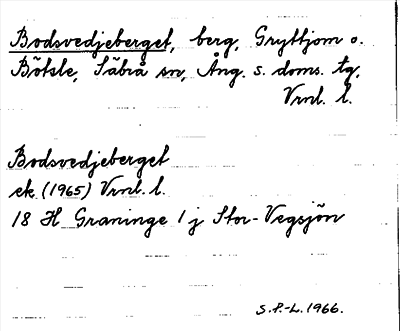 Bodsvedjeberget, berg, Gryttjom o.
Bötsle, Säbrå sn, Ång. s. doms. tg,
Vrnl. l.
Bodsvedjeberget
ek (1965) Vrnl. l.
18 H Graninge 1 j Stor-Vegsjön
S.P.-L. 1966.